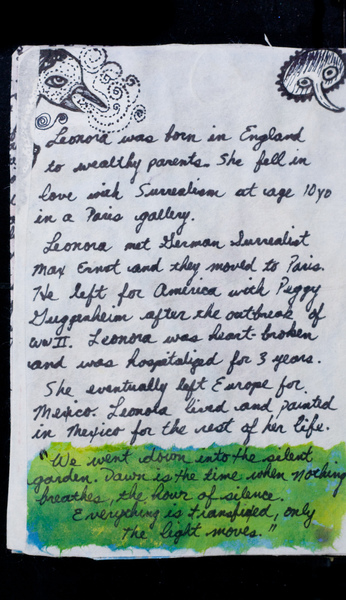 Leonora was born in England
to wealthy parents. She fell in
love with Surrealism at age 10yo
in a Paris gallery.
Leonora met German Surrealist
Max Ernst and they moved to Paris.
He left for America with Peggy
Guggenheim after the outbreak of
WWII. Leonora was heart-broken
and was hospitalized for 3 years.
She eventually left Europe for
Mexico. Leonora lived and painted
in Mexico for the rest of her life.
"We went down into the silent
garden. Dawn is the time when nothing
breathes, the hour of silence.
Everything is transfixed, only
the light moves."